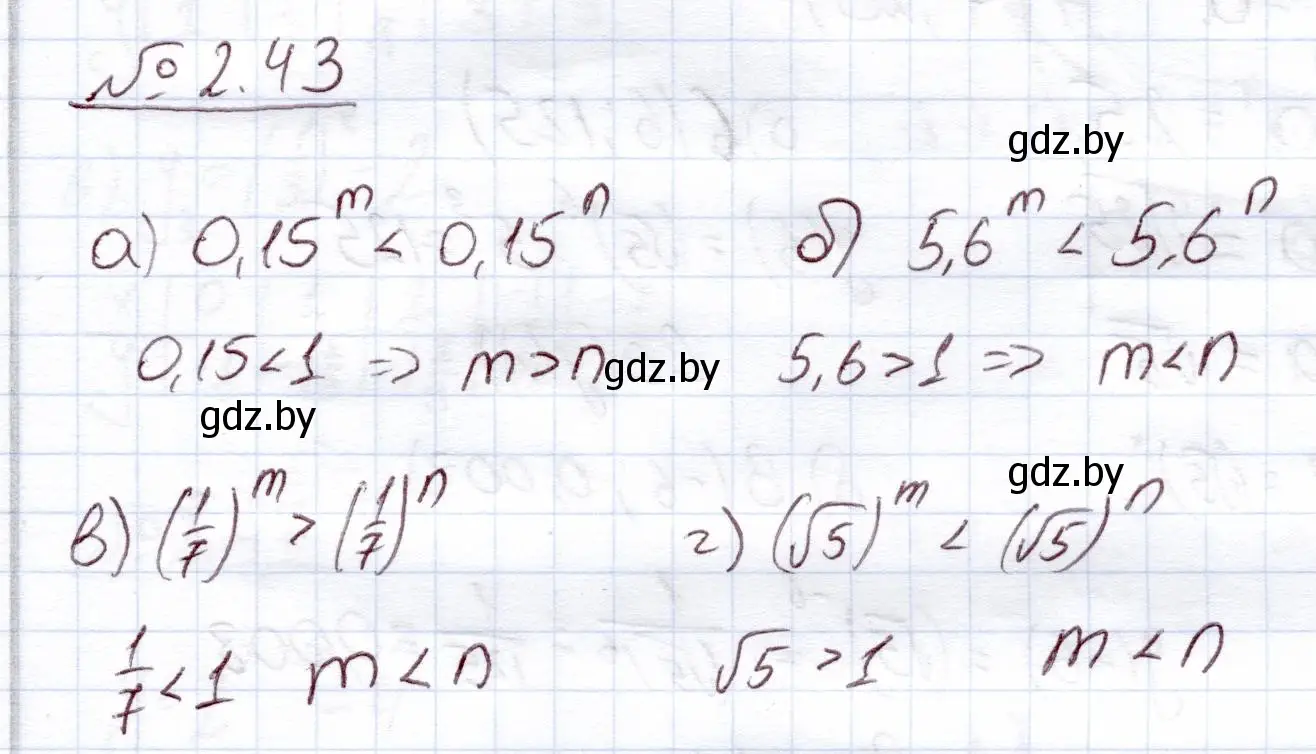 № 2.43
gdz.by
а) 0,15^m < 0,15^n б) 5,6^m < 5,6^n
0,15<1 => m>n gdz.by 5,6>1 => m<n
gdz.by
gdz.by
в) (1/7)^m > (1/7)^n г) (√5)^m < (√5)^n
1/7 < 1 m < n √5 > 1 m < n